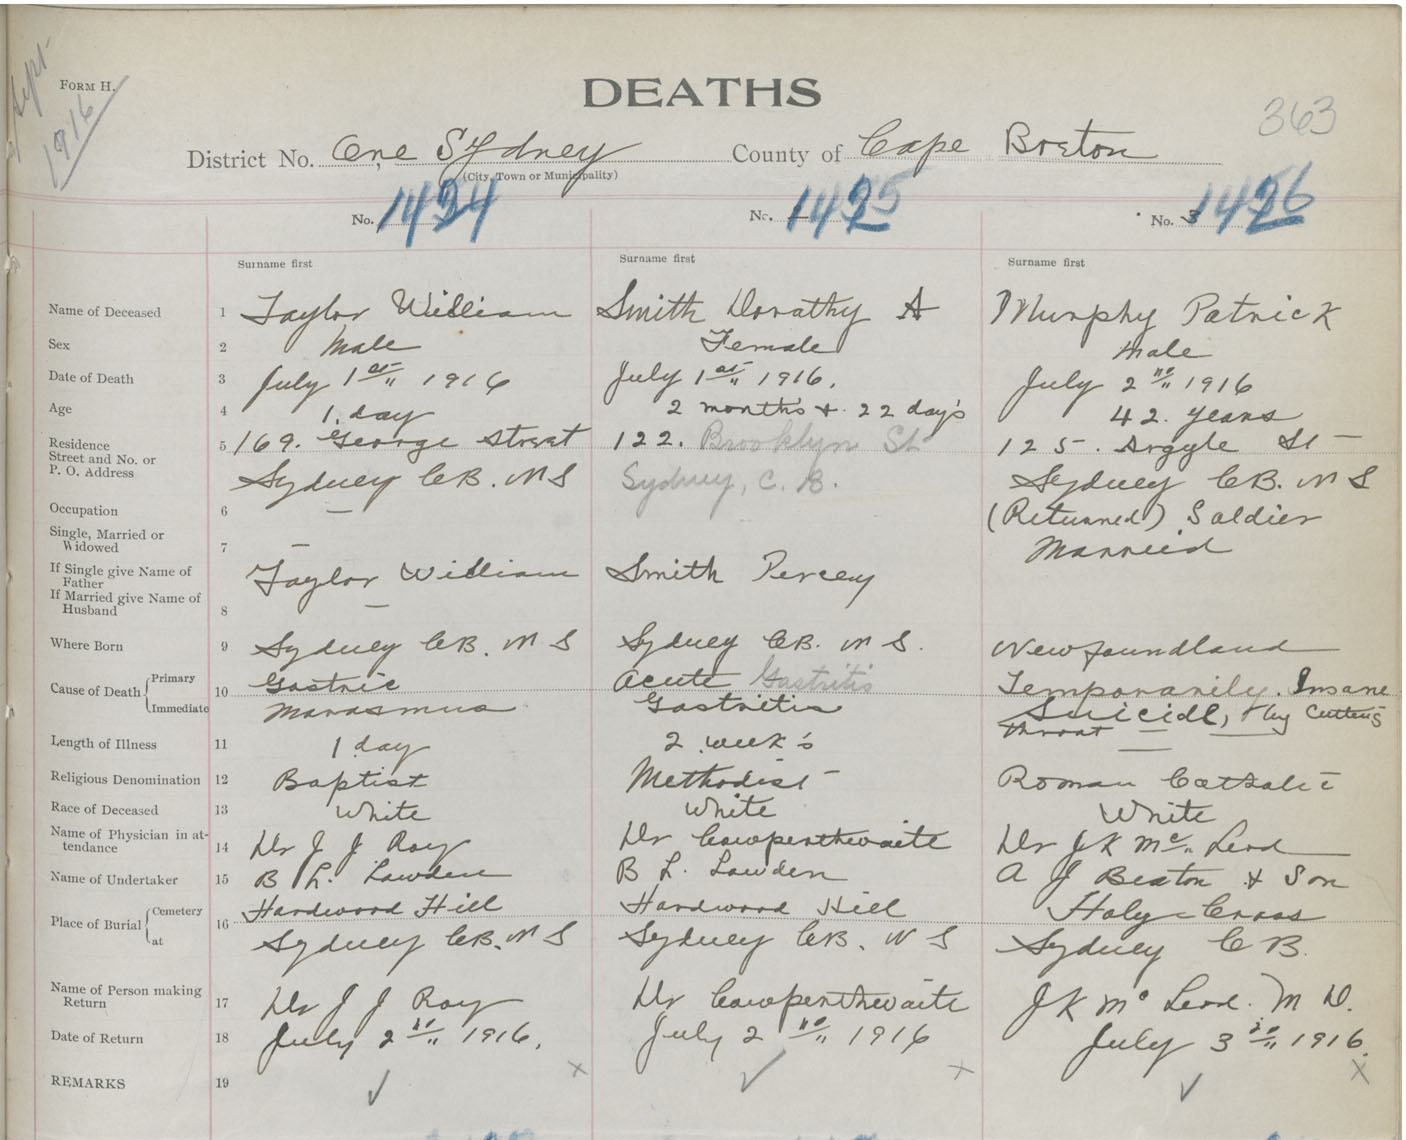 Sept 1916
FORM H.
DEATHS
363
District No. One Sydney County of Cape Breton
(City, Town or Municipality)
No. 1424 No. 1425 No. 3 1426
Surname first Surname first Surname first
Name of Deceased 1 Taylor William Smith Dorathy A Murphy Patrick
Sex 2 Male Female Male
Date of Death 3 July 1st 1916 July 1st 1916. July 2nd 1916
Age 4 1 day 2 months & 22 day's 42. years
Residence Street and No. or P. O. Address 5 169. George Street 122. Brooklyn St 125. Argyle St
Sydney CB. NS Sydney, C. B. Sydney CB. NS
Occupation 6 — (Returned) Soldier
Single, Married or Widowed 7 — Married
If Single give Name of Father Taylor William Smith Percey
If Married give Name of Husband 8 —
Where Born 9 Sydney CB. NS Sydney CB. NS. Newfoundland
Cause of Death Primary 10 Gastric Acute Gastritis Temporarily. Insane
Immediate Marasmus Gastritis Suicide, by Cutting throat
Length of Illness 11 1 day 2 week's —
Religious Denomination 12 Baptist Methodist Roman Catholic
Race of Deceased 13 White White White
Name of Physician in attendance 14 Dr J J Roy Dr Cowperthwaite Dr J K Mc Leod
Name of Undertaker 15 B L. Lowden B L. Lowden A J Beaton & Son
Place of Burial Cemetery 16 Hardwood Hill Hardwood Hill Holy Cross
at Sydney CB. NS Sydney CB. NS Sydney CB.
Name of Person making Return 17 Dr J J Roy Dr Cowperthwaite J K Mc Leod. M D.
Date of Return 18 July 2nd 1916. July 2nd 1916 July 3rd 1916.
REMARKS 19